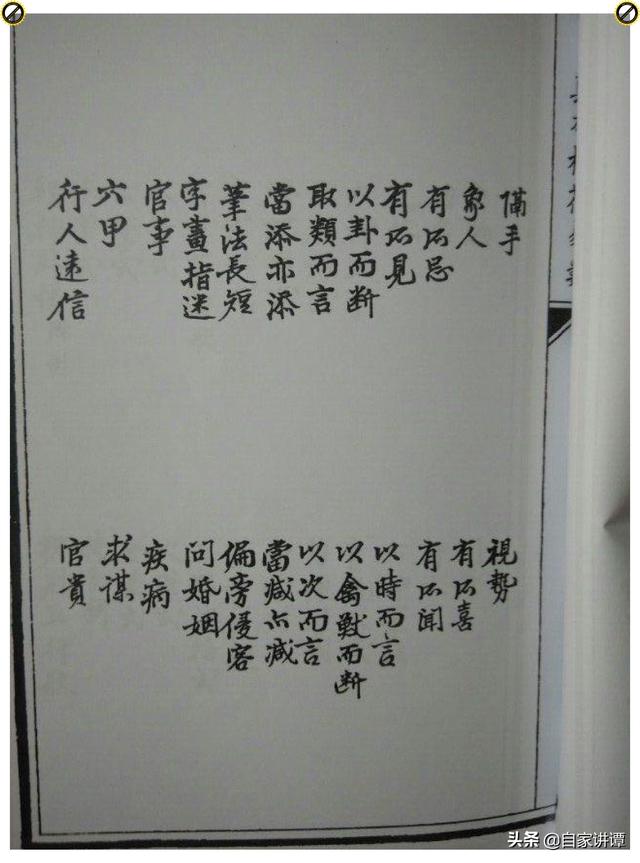 手
視勢
象人
有所喜
有所忌
有所聞
有所見
以時而言
以卦而断
以禽獸而断
取類而言
以次而言
當添亦添
當减亦减
筆法長短
偏旁侵客
字畫指迷
問婚姻
官事
疾病
六甲
求謀
行人遠信
官貴
头条 @自家讲谭